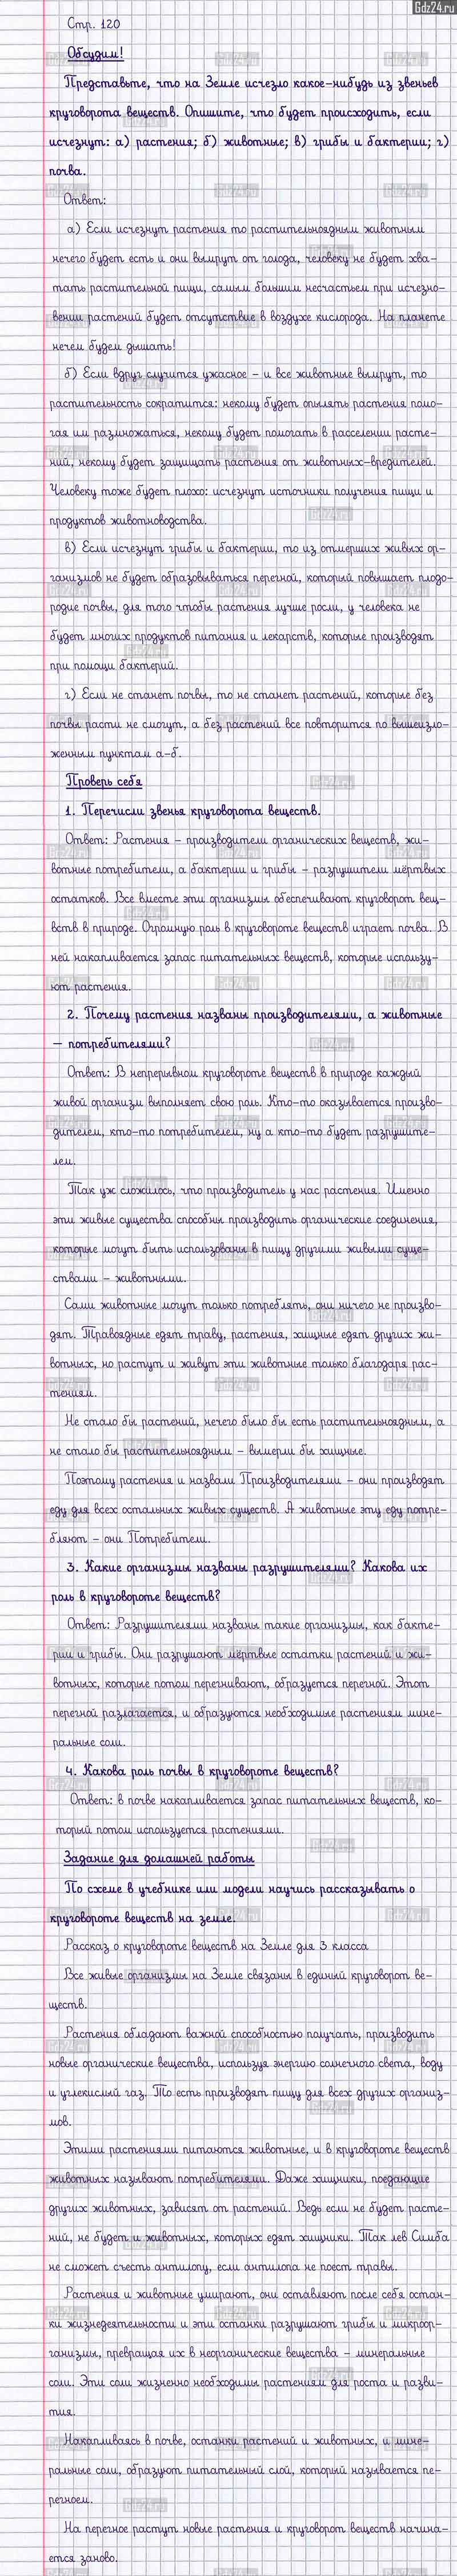 Gdz24.ru
Стр. 120
Обсудим!
Представьте, что на Земле исчезло какое-нибудь из звеньев
круговорота веществ. Опишите, что будет происходить, если
исчезнут: а) растения; б) животные; в) грибы и бактерии; г)
почва.
Ответ:
а) Если исчезнут растения то растительноядным животным
нечего будет есть и они вымрут от голода, человеку не будет хва-
тать растительной пищи, самым большим несчастьем при исчезно-
вении растений будет отсутствие в воздухе кислорода. На планете
нечем будем дышать!
б) Если вдруг случится ужасное – и все животные вымрут, то
растительность сократится: некому будет опылять растения помо-
гая им размножаться, некому будет помогать в расселении расте-
ний, некому будет защищать растения от животных-вредителей.
Человеку тоже будет плохо: исчезнут источники получения пищи и
продуктов животноводства.
в) Если исчезнут грибы и бактерии, то из отмерших живых ор-
ганизмов не будет образовываться перегной, который повышает плодо-
родие почвы, для того чтобы растения лучше росли, у человека не
будет многих продуктов питания и лекарств, которые производят
при помощи бактерий.
г) Если не станет почвы, то не станет растений, которые без
почвы расти не смогут, а без растений все повторится по вышеизло-
женным пунктам а-б.
Проверь себя
1. Перечисли звенья круговорота веществ.
Ответ: Растения – производители органических веществ, жи-
вотные потребители, а бактерии и грибы – разрушители мёртвых
остатков. Все вместе эти организмы обеспечивают круговорот вещ-
вств в природе. Огромную роль в круговороте веществ играет почва. В
ней накапливается запас питательных веществ, которые использу-
ют растения.
2. Почему растения названы производителями, а животные
– потребителями?
Ответ: В непрерывном круговороте веществ в природе каждый
живой организм выполняет свою роль. Кто-то оказывается произво-
дителем, кто-то потребителем, ну а кто-то будет разрушите-
лем.
Так уж сложилось, что производитель у нас растения. Именно
эти живые существа способны производить органические соединения,
которые могут быть использованы в пищу другими живыми суще-
ствами – животными.
Сами животные могут только потреблять, они ничего не произво-
дят. Травоядные едят траву, растения, хищные едят других жи-
вотных, но растут и живут эти животные только благодаря рас-
тениям.
Не стало бы растений, нечего было бы есть растительноядным, а
не стало бы растительноядным – вымерли бы хищные.
Поэтому растения и назвали Производителями – они производят
еду для всех остальных живых существ. А животные эту еду потре-
бляют – они Потребители.
3. Какие организмы названы разрушителями? Какова их
роль в круговороте веществ?
Ответ: Разрушителями названы такие организмы, как бакте-
рии и грибы. Они разрушают мёртвые остатки растений и жи-
вотных, которые потом перегнивают, образуется перегной. Этот
перегной разлагается, и образуются необходимые растениям мине-
ральные соли.
4. Какова роль почвы в круговороте веществ?
Ответ: в почве накапливается запас питательных веществ, ко-
торый потом используется растениями.
Задание для домашней работы
По схеме в учебнике или модели научись рассказывать о
круговороте веществ на земле.
Рассказ о круговороте веществ на Земле для 3 класса
Все живые организмы на Земле связаны в единый круговорот ве-
ществ.
Растения обладают важной способностью получать, производить
новые органические вещества, используя энергию солнечного света, воду
и углекислый газ. То есть производят пищу для всех других организ-
мов.
Этими растениями питаются животные, и в круговороте веществ
животных называют потребителями. Даже хищники, поедающие
других животных, зависят от растений. Ведь если не будет расте-
ний, не будет и животных, которых едят хищники. Так лев Симба
не сможет съесть антилопу, если антилопа не поест травы.
Растения и животные умирают, они оставляют после себя остан-
ки жизнедеятельности и эти останки разрушают грибы и микроор-
ганизмы, превращая их в неорганические вещества – минеральные
соли. Эти соли жизненно необходимы растениям для роста и разви-
тия.
Накапливаясь в почве, останки растений и животных, и мине-
ральные соли, образуют питательный слой, который называется пе-
регноем.
На перегное растут новые растения и круговорот веществ начина-
ется заново.